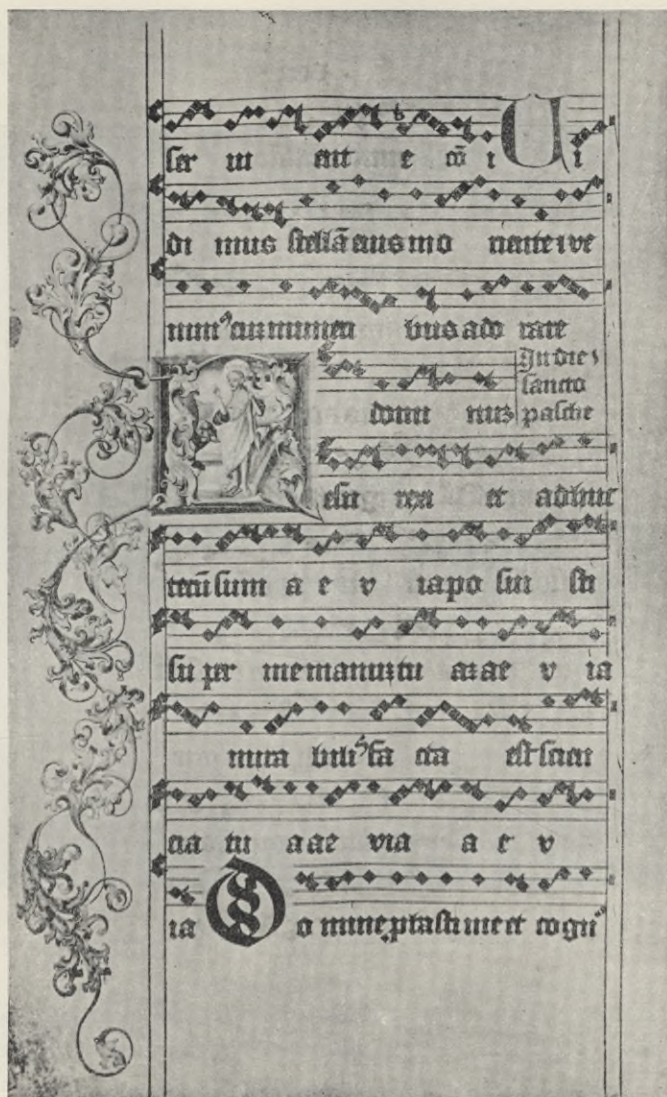 ser ui ent e cō i Ui
di mus stellā eius mo riente i ve
nim⁹ cum mune ri bus ado rare
domi nus
In die
sancto
pasche
Resu rexi et adhuc
tecū sum a e v ia po sui sti
su per me manuz tu az ae v ia
mira bil⁹ fa cta est scien
cia tu a ae via a e v
ia Domine pbasti me et cogn